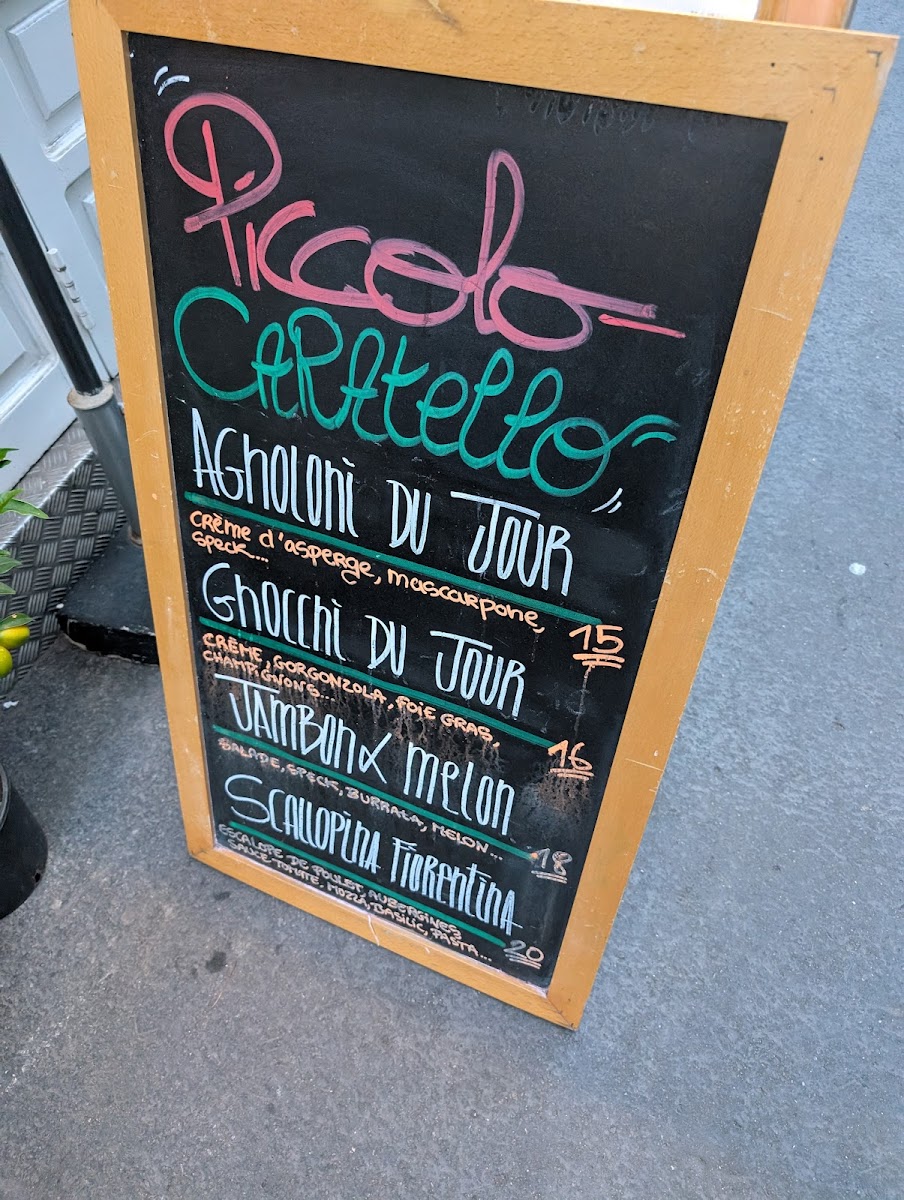 Piccolo
CARAtello
AGNOLONI DU JOUR
crème d'asperge, mascarpone,
speck... 15
GNOCCHI DU JOUR
CRÈME, GORGONZOLA, FOIE GRAS,
CHAMPIGNONS... 16
JAMBON & MELON
SALADE, SPECK, BURRATA, MELON... 18
SCALLOPINA FIORENTINA
ESCALOPE DE POULET, AUBERGINES,
SAUCE TOMATE, MOZZA, BASILIC, PASTA... 20